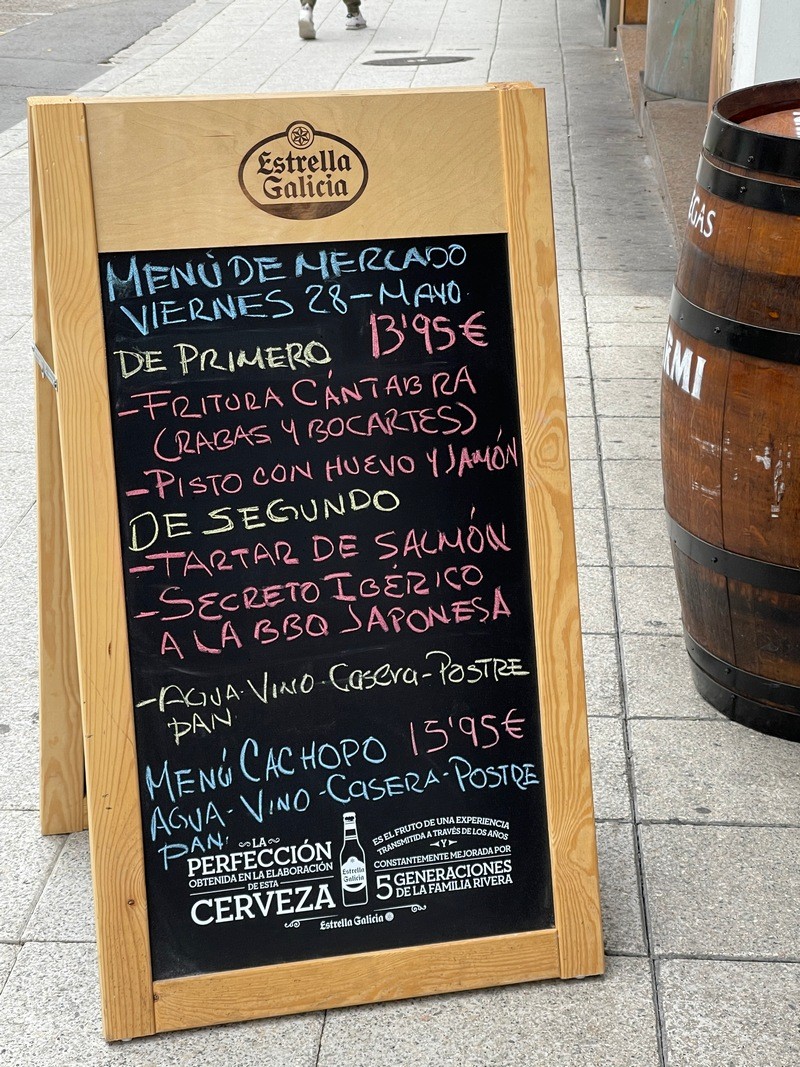 Estrella
Galicia
MENÚ DE MERCADO
VIERNES 28 - MAYO
13'95€
DE PRIMERO
- FRITURA CÁNTABRA
(RABAS Y BOCARTES)
- PISTO CON HUEVO Y JAMÓN
DE SEGUNDO
- TARTAR DE SALMÓN
- SECRETO IBÉRICO
A LA BBQ JAPONESA
- AGUA - VINO - Casera - POSTRE
PAN
MENÚ CACHOPO 15'95€
AGUA - VINO - CASERA - POSTRE
PAN
LA
PERFECCIÓN
OBTENIDA EN LA ELABORACIÓN
DE ESTA
CERVEZA
Estrella
Galicia
ES EL FRUTO DE UNA EXPERIENCIA
TRANSMITIDA A TRAVÉS DE LOS AÑOS
Y
CONSTANTEMENTE MEJORADA POR
5 GENERACIONES
DE LA FAMILIA RIVERA
Estrella Galicia
GAS
RMI